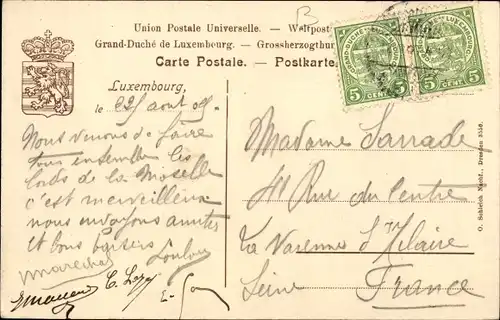 Union Postale Universelle. — Weltpost
Grand-Duché de Luxembourg. — Grossherzogthu
Carte Postale. — Postkarte.
GRAND-DUCHÉ DE LUXEMBOURG
5 CENT. 5
5 CENT. 5
Luxembourg,
le 22 août 09.
Nous venons de faire
tous ensemble les
bords de la Moselle
c'est merveilleux
nous envoyons amitiés
et bons baisers
Loulou
Marechal
Madame Sarrade
41 Rue du Centre
La Varenne St Hilaire
Seine France
O. Schleich Nachf., Dresden